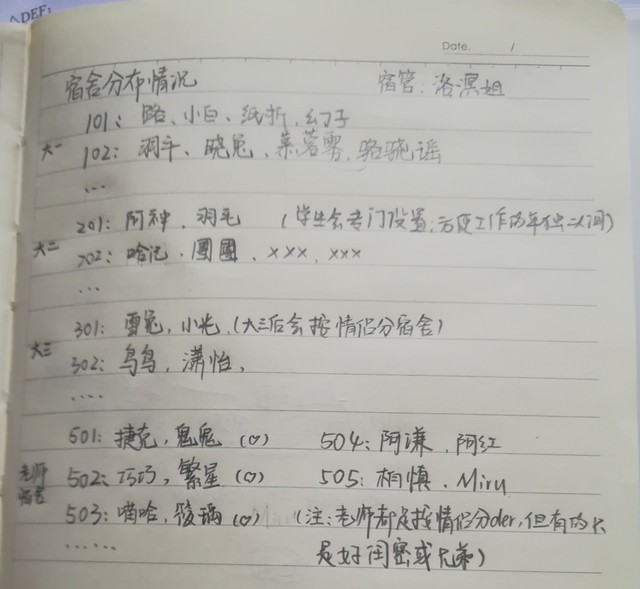 △DEF:
Date.      /
宿舍分布情况    宿管:洛溟姐
101:路、小白、纸折、幻子
大一 102:羽千、晓兔、莱蓉雾、骆晓谣
...
201:阿神、羽毛 (学生会专门设置,方便工作的年独二人间)
大二 202:哈记、團團、xxx、xxx
...
301:雪兔,小光,(大三后会按情侣分宿舍)
大三 302:鸟鸟,潇怡,
....
501:捷克,鬼鬼(♡)    504:阿谦,阿红
老师宿舍 502:巧巧,繁星(♡)    505:柏慎、Miru
503:喵哈,绫瑀(♡)    (注:老师都是按情侣分der,但有的只
......    是好闺密或兄弟)